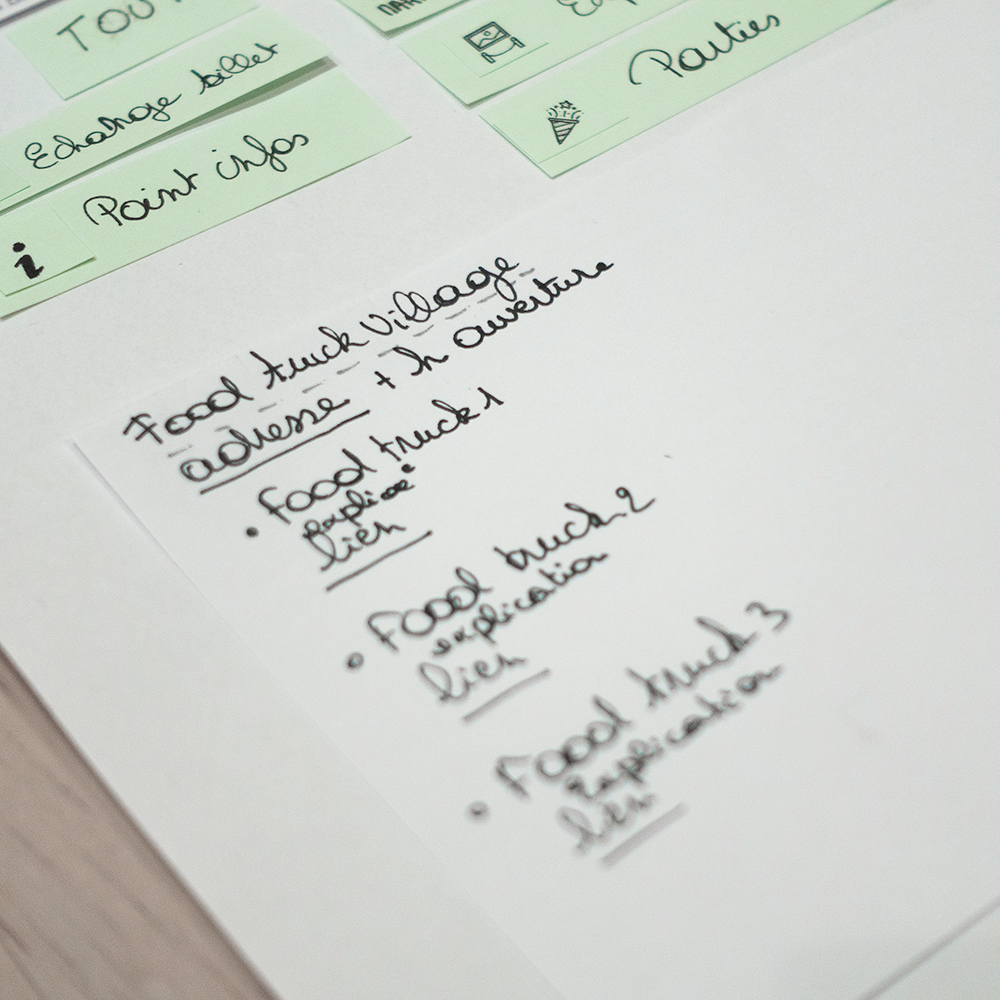 TOU
Echange billet
Point infos
i
Parties
Food truck village
adresse + h ouverture
• Food truck 1
lien
• Food truck 2
explication
lien
• Food truck 3
explication
lien